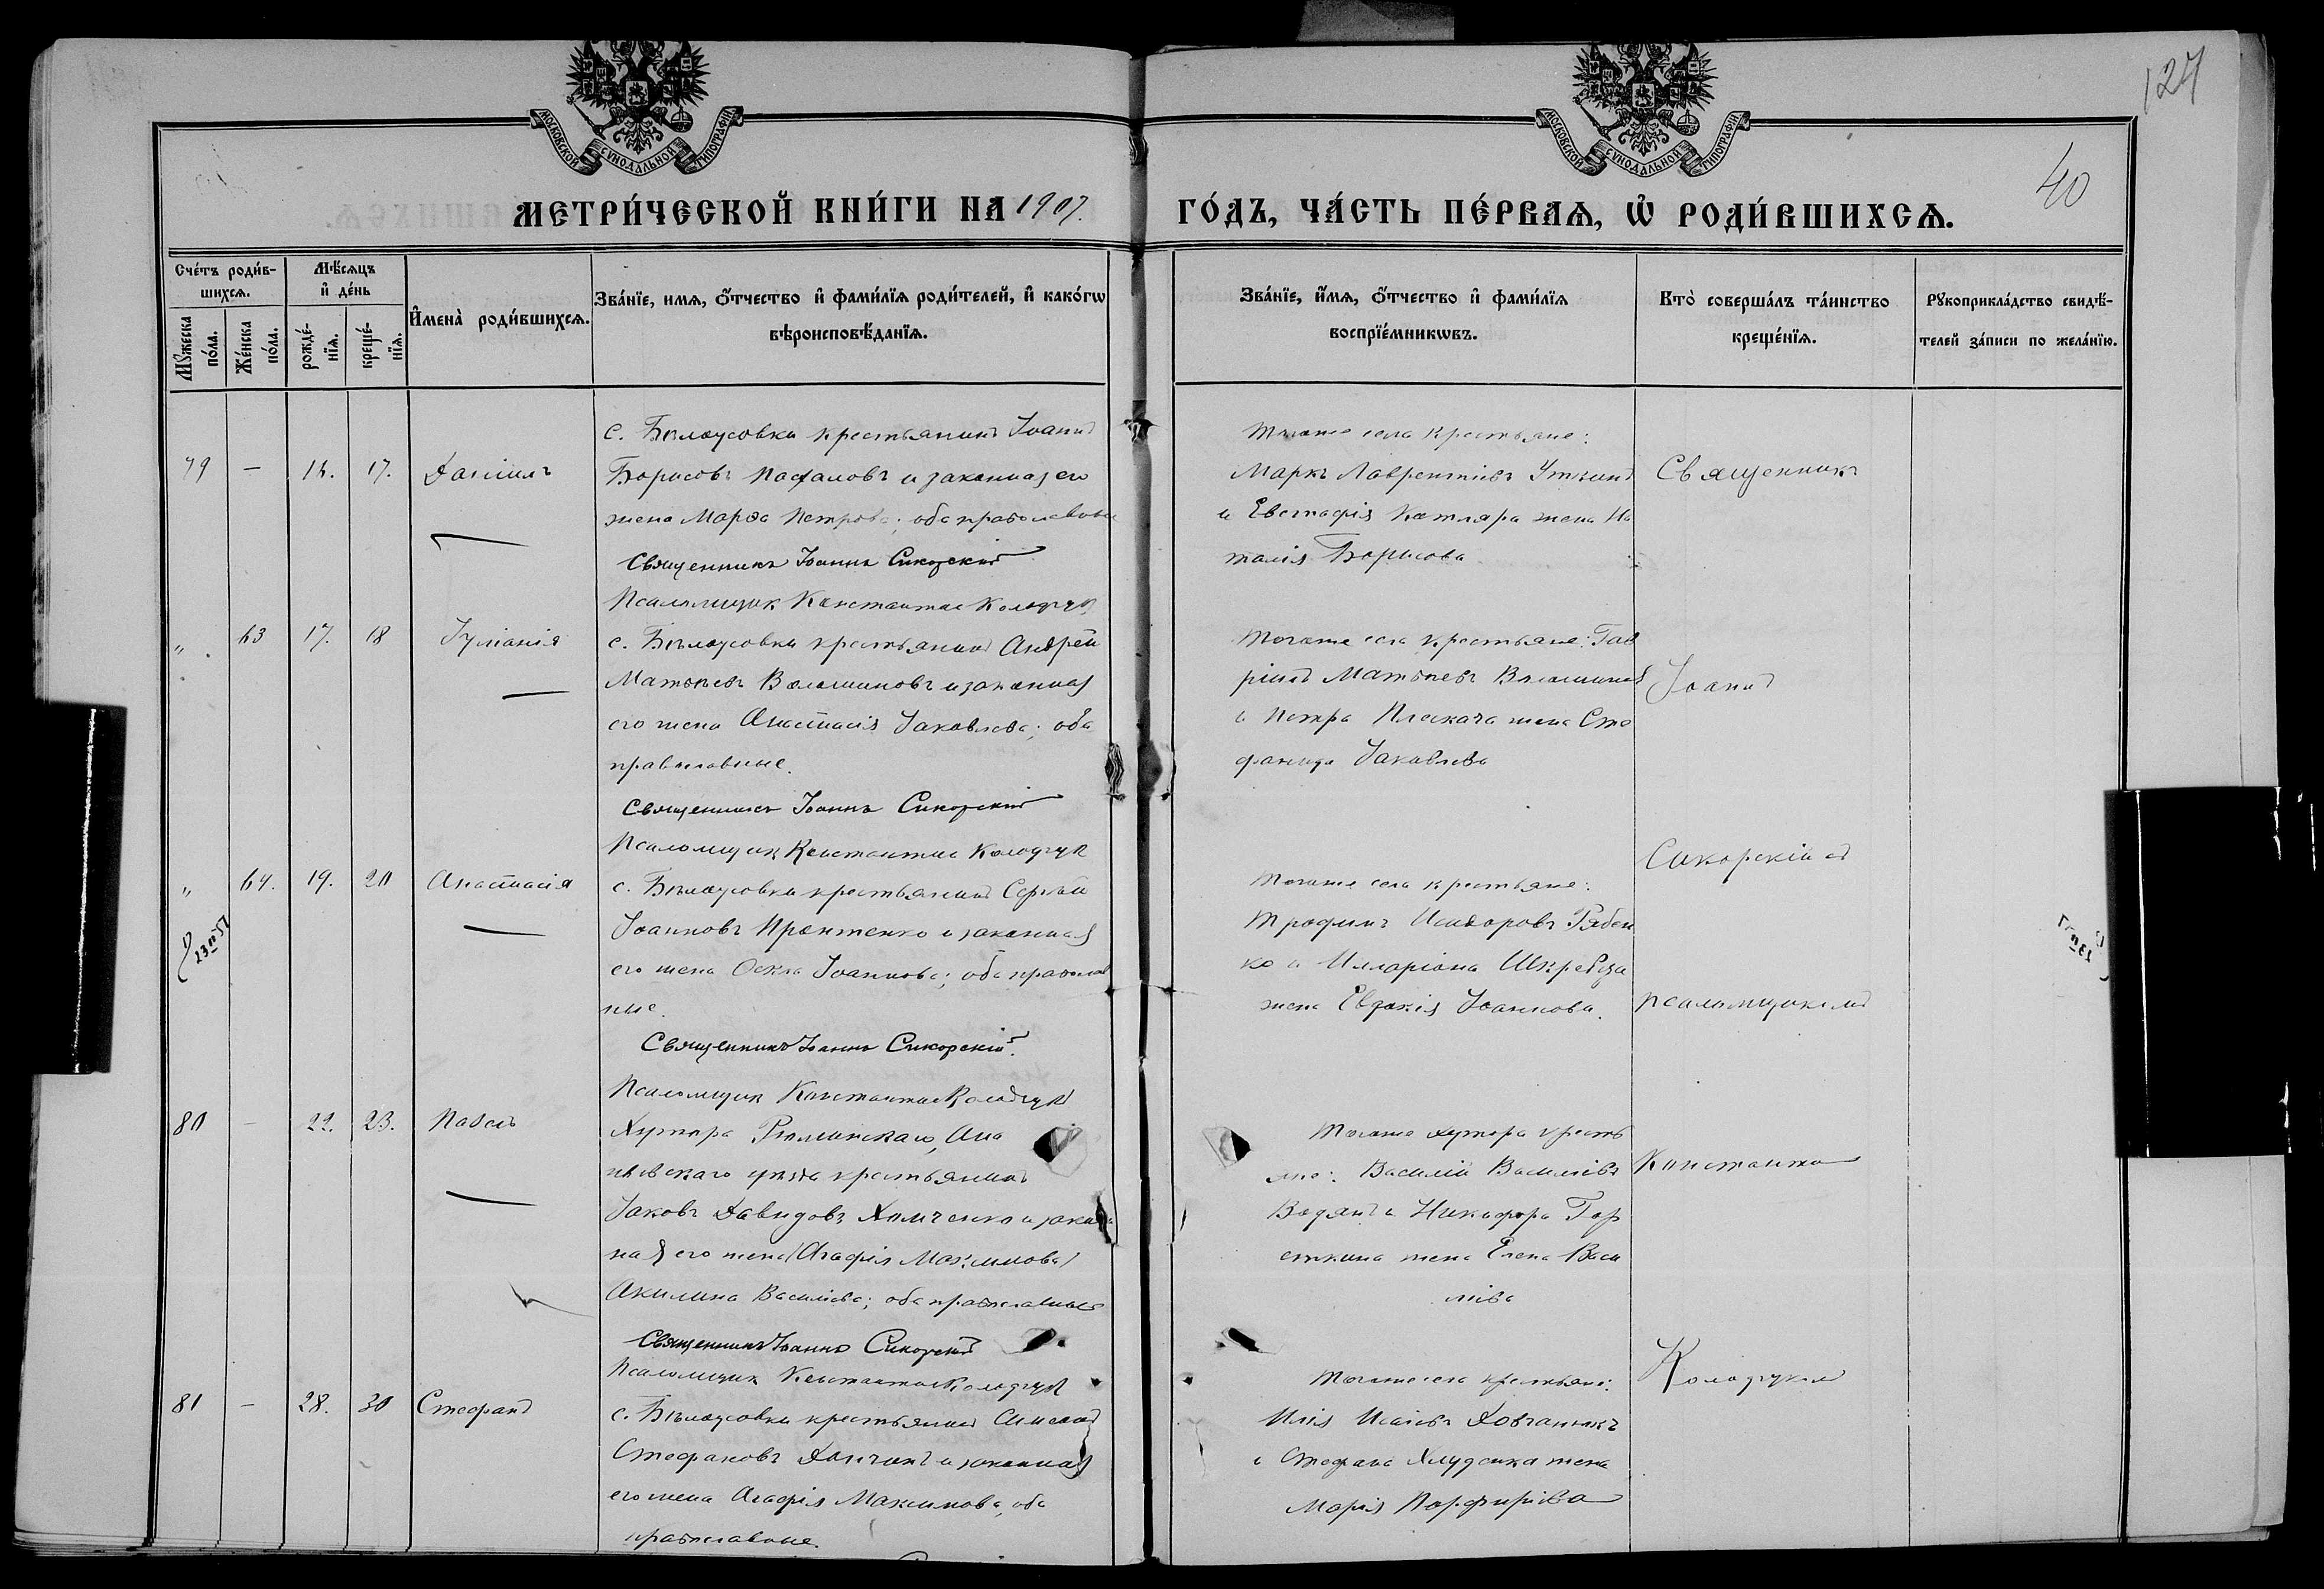 МОСКОВСКОЙ СУНОДАЛЬНОЙ ТИПОГРАФІИ
МОСКОВСКОЙ СУНОДАЛЬНОЙ ТИПОГРАФІИ
127
40
МЕТРИ́ЧЕСКОЙ КНИ́ГИ НА 1907.
ГО́ДЪ, ЧА́СТЬ ПЕ́РВАѦ, Ѡ҆ РОДИ́ВШИХСѦ.
Сче́тъ роди́в-
шихсѧ.
Мѣ́сѧцъ
и҆ де́нь
Мꙋ́жеска
по́ла.
Же́нска
по́ла.
рожде́-
нїѧ.
креще́-
нїѧ.
И҆мена̀ роди́вшихсѧ.
Зва́нїе, имѧ, ѻ҆́тчество и҆ фами́лїѧ роди́телей, и҆ како́гѡ
вѣроисповѣ́данїѧ.
Зва́нїе, и҆́мѧ, ѻ҆́тчество и҆ фами́лїѧ
воспрїе́мникѡвъ.
Кто̀ соверша́лъ та́инство
креще́нїѧ.
Рꙋкоприкла́дство свидѣ́-
телей за́писи по жела́нїю.
79 — 17. Даніилъ
с. Бѣлоусовки крестьянинъ Іоаннъ
Борисовъ и законная его
жена Марѳа Петрова; оба православные
Священникъ Іоаннъ Сикорскій
Псаломщик Константин Колодчук
Тогоже села крестьяне:
Маркъ Лаврентіевъ
и Евстафія Котляра жена На
талія Борисова
Священникъ
" 63 17. 18 Іуліанія
с. Бѣлоусовки крестьянинъ Андрей
Матѳеевъ Волошиновъ и законная
его жена Анастасія Іаковлева; оба
православные.
Священникъ Іоаннъ Сикорскій
Псаломщик Константин Колодчук
Тогоже села крестьяне: Гав
ріилъ Матѳеевъ Волошиновъ
и Петра Плескача жена Сте
фанида Іаковлева
Іоаннъ
" 64. 19. 20 Анастасія
с. Бѣлоусовки крестьянинъ Сергѣй
Іоанновъ и законная
его жена Ѳекла Іоаннова; оба православ
ные.
Священникъ Іоаннъ Сикорскій.
Псаломщик Константин Колодчук
Тогоже села крестьяне:
Трофимъ Исидоровъ Рябен
ко и Илларіона
жена Евдокія Іоаннова.
Сикорскій съ
псаломщикомъ
80 — 22. 23. Павелъ
Хутора Ана
ньевскаго уѣзда крестьянинъ
Іаковъ Давидовъ и закон
ная его жена (Агафія Максимова)
Акилина Василіева; оба православные
Священникъ Іоаннъ Сикорскій
Псаломщик Константин Колодчук
Тогоже хутора кресть
яне: Василій Василіевъ
и Никифора Гор
жена Елена Васи
ліева
Константи
81 — 28. 30 Стефанъ
с. Бѣлоусовки крестьянинъ Симеонъ
Стефановъ и законная
его жена Агафія Максимова, оба
православные.
Тогоже села крестьяне:
Илія Исаіевъ Довганюкъ
и Стефана жена
Марія Порфиріева
Колодчукомъ